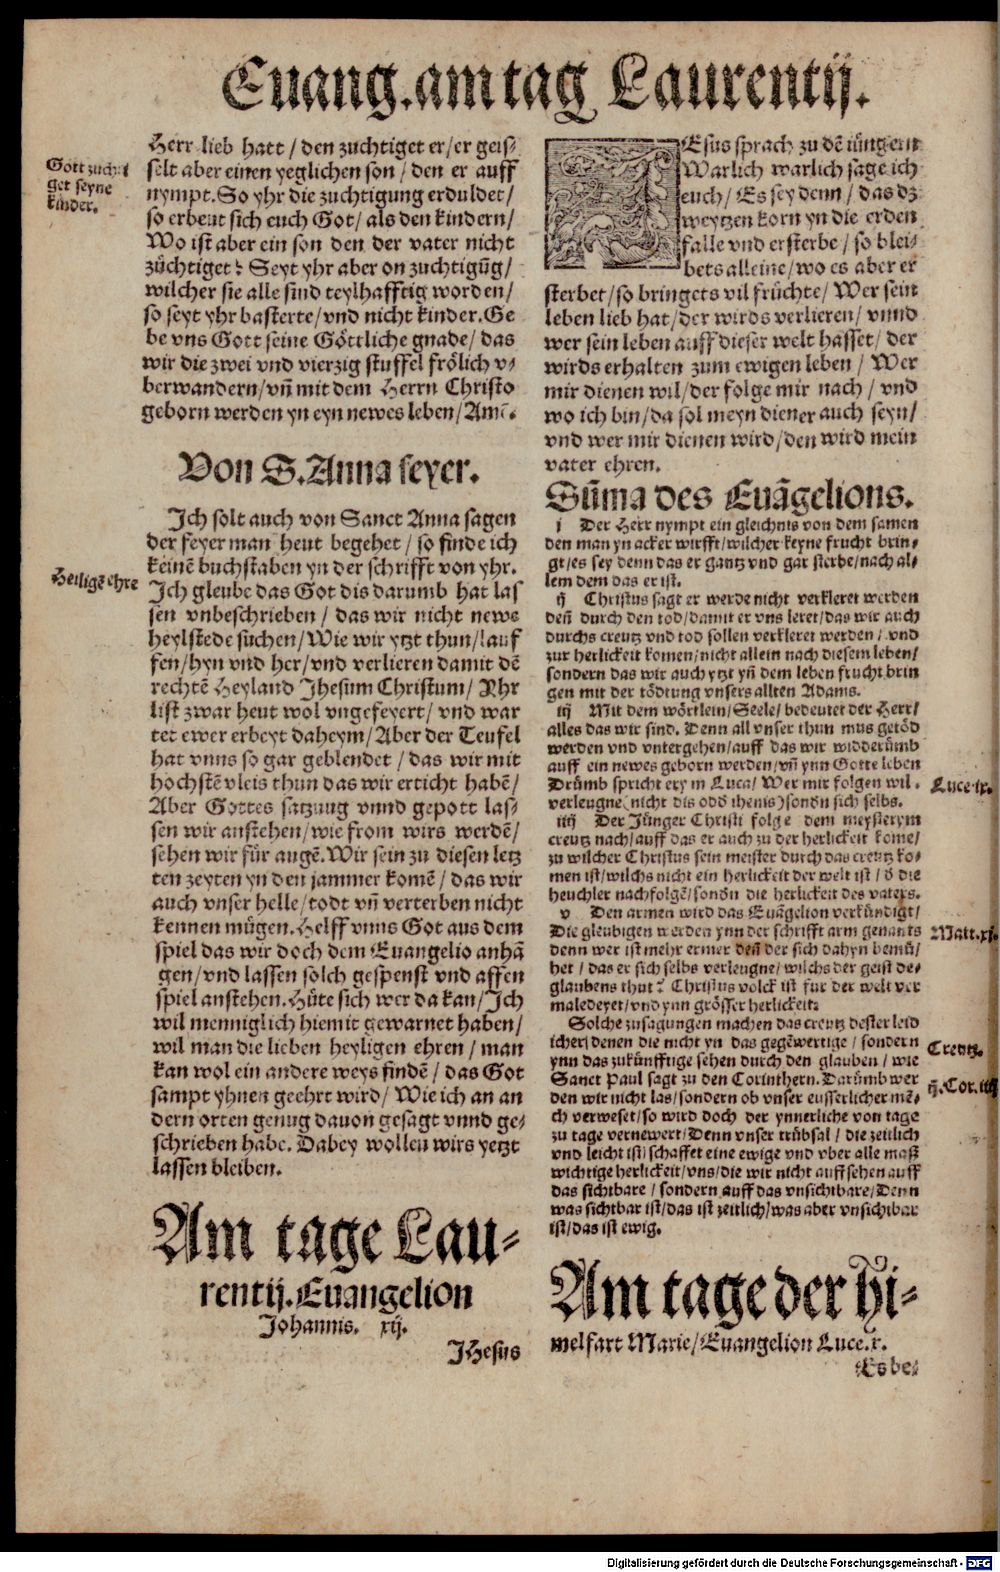 Euang. am tag Laurentij.
Herr lieb hatt / den zuchtiget er / er geis-
selt aber einen yeglichen son / den er auff
nympt. So yhr die zuchtigung erduldet /
so erbeut sich euch Got / als den kindern /
Wo ist aber ein son den der vater nicht
züchtiget? Seyt yhr aber on zuchtigūg /
wilcher sie alle sind teylhafftig worden /
so seyt yhr basterte / vnd nicht kinder. Ge
be vns Gott seine Göttliche gnade / das
wir die zwei vnd vierzig stuffel frölich v-
berwandern / vn̄ mit dem Herrn Christo
geborn werden yn eyn newes leben / Amē.
Gott zuchti
get seyne
kinder.
Von S. Anna feyer.
Ich solt auch von Sanct Anna sagen
der feyer man heut begehet / so finde ich
keinē buchstaben yn der schrifft von yhr.
Ich gleube das Got dis darumb hat las
sen vnbeschrieben / das wir nicht newe
heylstede suchen / Wie wir ytzt thun / lauf
fen / hyn vnd her / vnd verlieren damit dē
rechtē Heyland Jhesum Christum / Yhr
list zwar heut wol vngefeyert / vnd war
tet ewer erbeyt daheym / Aber der Teufel
hat vnns so gar geblendet / das wir mit
hochstē vleis thun das wir erticht habē /
Aber Gottes satzung vnnd gepott las-
sen wir anstehen / wie from wirs werdē /
sehen wir für augē. Wir sein zu diesen letz
ten zeyten yn den jammer komē / das wir
auch vnser helle / todt vn̄ verterben nicht
kennen mügen. Helff vnns Got aus dem
spiel das wir doch dem Euangelio anhā
gen / vnd lassen solch gespenst vnd affen
spiel anstehen. Hüte sich wer da kan / Ich
wil menniglich hiemit gewarnet haben /
wil man die lieben heyligen ehren / man
kan wol ein andere weys findē / das Got
sampt yhnen geehrt wird / Wie ich an an
dern orten genug dauon gesagt vnnd ge-
schrieben habe. Dabey wollen wirs yetzt
lassen bleiben.
Heiligē ehre
Am tage Lau-
rentij. Euangelion
Johannis. xij.
JHesus
JEsus sprach zu dē iüngern
Warlich warlich sage ich
euch / Es sey denn / das dz
weytzen korn yn die erden
falle vnd ersterbe / so blei-
bets alleine / wo es aber er
sterbet / so bringets vil früchte / Wer sein
leben lieb hat / der wirds verlieren / vnnd
wer sein leben auff dieser welt hasset / der
wirds erhalten zum ewigen leben / Wer
mir dienen wil / der folge mir nach / vnd
wo ich bin / da sol meyn diener auch seyn /
vnd wer mir dienen wird / den wird mein
vater ehren.
Sūma des Euāgelions.
j Der Herr nympt ein gleichnis von dem samen
den man yn acker wirfft / wilcher keyne frucht brin-
gt / es sey denn das er gantz vnd gar sterbe / nach al-
lem dem das er ist.
ij Christus sagt er werde nicht verkleret werden
deñ durch den tod / damit er vns leret / das wir auch
durchs creutz vnd tod sollen verkleret werden / vnd
zur herlickeit komen / nicht allein nach diesem leben /
sondern das wir auch ytzt yn̄ dem leben frucht brin
gen mit der tödtung vnsers allten Adams.
iij Mit dem wörtlein / Seele / bedeutet der Herr /
alles das wir sind. Denn all vnser thun mus getöd
werden vnd vntergehen / auff das wir widderümb
auff ein newes geborn werden / vn̄ ynn Gotte leben
Drümb spricht er ym Luca / Wer mir folgen wil.
verleugne (nicht dis odd' ihenis) sond'n sich selbs.
iiij Der Jünger Christi folge dem meyster ym
creutz nach / auff das er auch zu der herlickeit kome /
zu wilcher Christus sein meister durch das creutz ko-
men ist / wilchs nicht ein herlickeit der welt ist / d' die
heuchler nachfolgē / sond'n die herlickeit des vaters.
v Den armen wird das Euāgelion verkündigt /
Die gleubigen werden ynn der schrifft arm genants
denn wer ist mehr ermer deñ der sich dahyn bemü-
het / das er sich selbs verleugne / wilchs der geist des
glaubens thut? Christus volck ist fur der welt ver
maledeyet / vnd ynn grösser herlickeit:
Solche zusagungen machen das creutz dester leid
icher / denen die nicht yn das gegēwertige / sondern
ynn das zukünfftige sehen durch den glauben / wie
Sanct Paul sagt zu den Corinthern. Darümb wer
den wir nicht las / sondern ob vnser eusserlicher mē-
ch verweset / so wird doch der ynnerliche von tage
zu tage vernewert / Denn vnser trübsal / die zeitlich
vnd leicht ist / schaffet eine ewige vnd vber alle masz
wichtige herlickeit / vns / die wir nicht auff sehen auff
das sichtbare / sondern auff das vnsichtbare / Denn
was sichtbar ist / das ist zeitlich / was aber vnsichtbar
ist / das ist ewig.
Luce. ix.
Matt. xj.
Creutz.
ij. Cor. iiij
Am tage der hi-
melfart Marie / Euangelion Luce. x.
Es be-
Digitalisierung gefördert durch die Deutsche Forschungsgemeinschaft - DFG